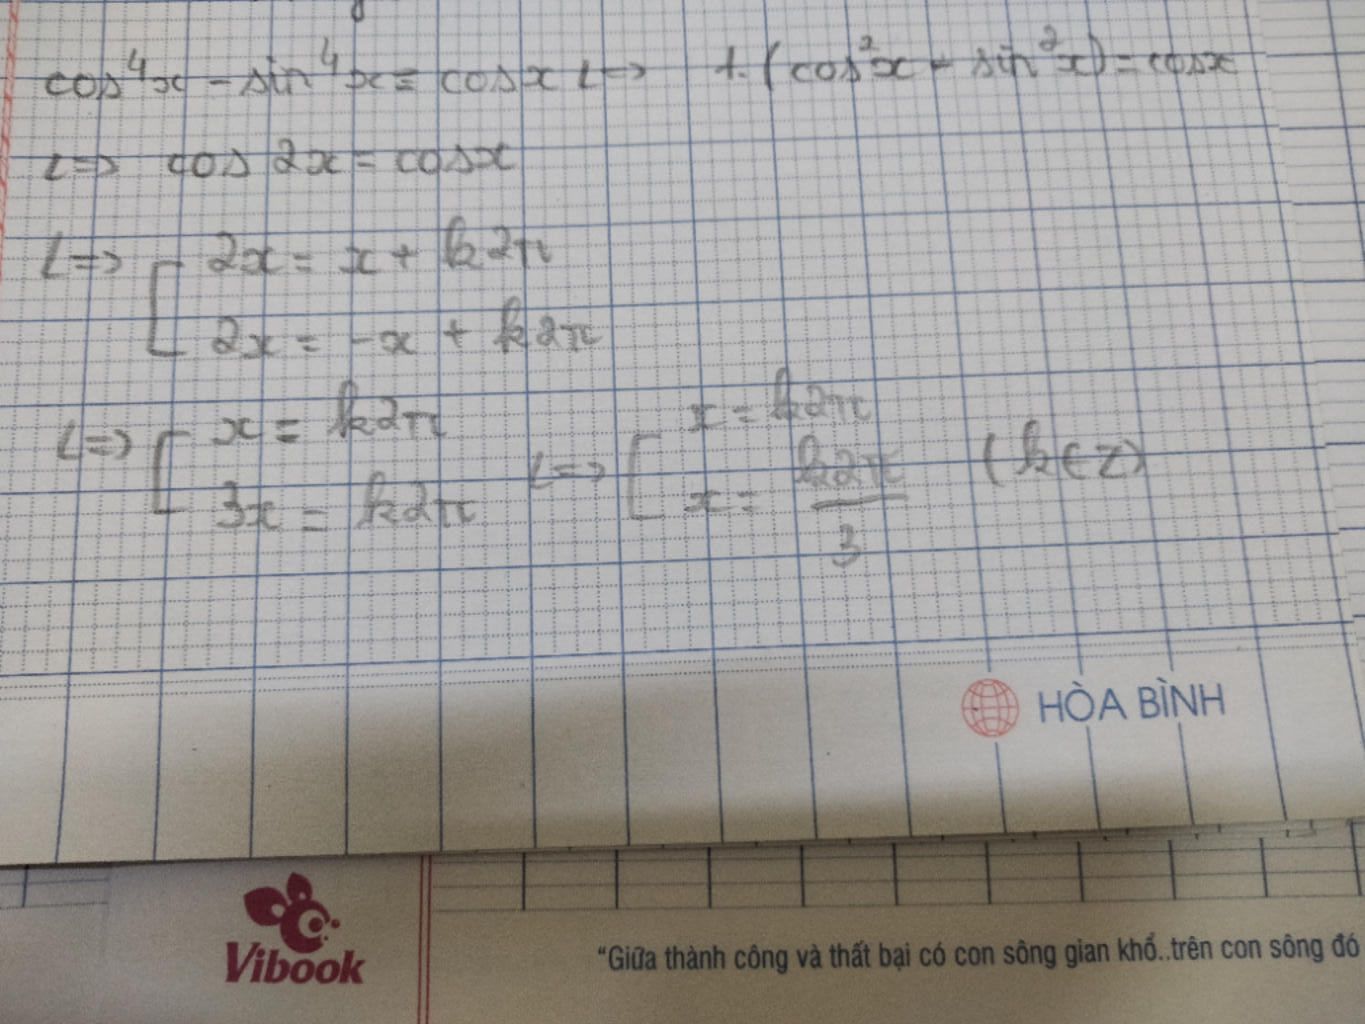 cos⁴x - sin⁴x = cosx <=> 1.(cos²x - sin²x) = cosx
<=> cos 2x = cosx
<=> [ 2x = x + k2π
2x = -x + k2π
<=> [ x = k2π <=> [ x = k2π (k∈Z)
3x = k2π x = k2π/3
HÒA BÌNH
Vibook
"Giữa thành công và thất bại có con sông gian khổ..trên con sông đó